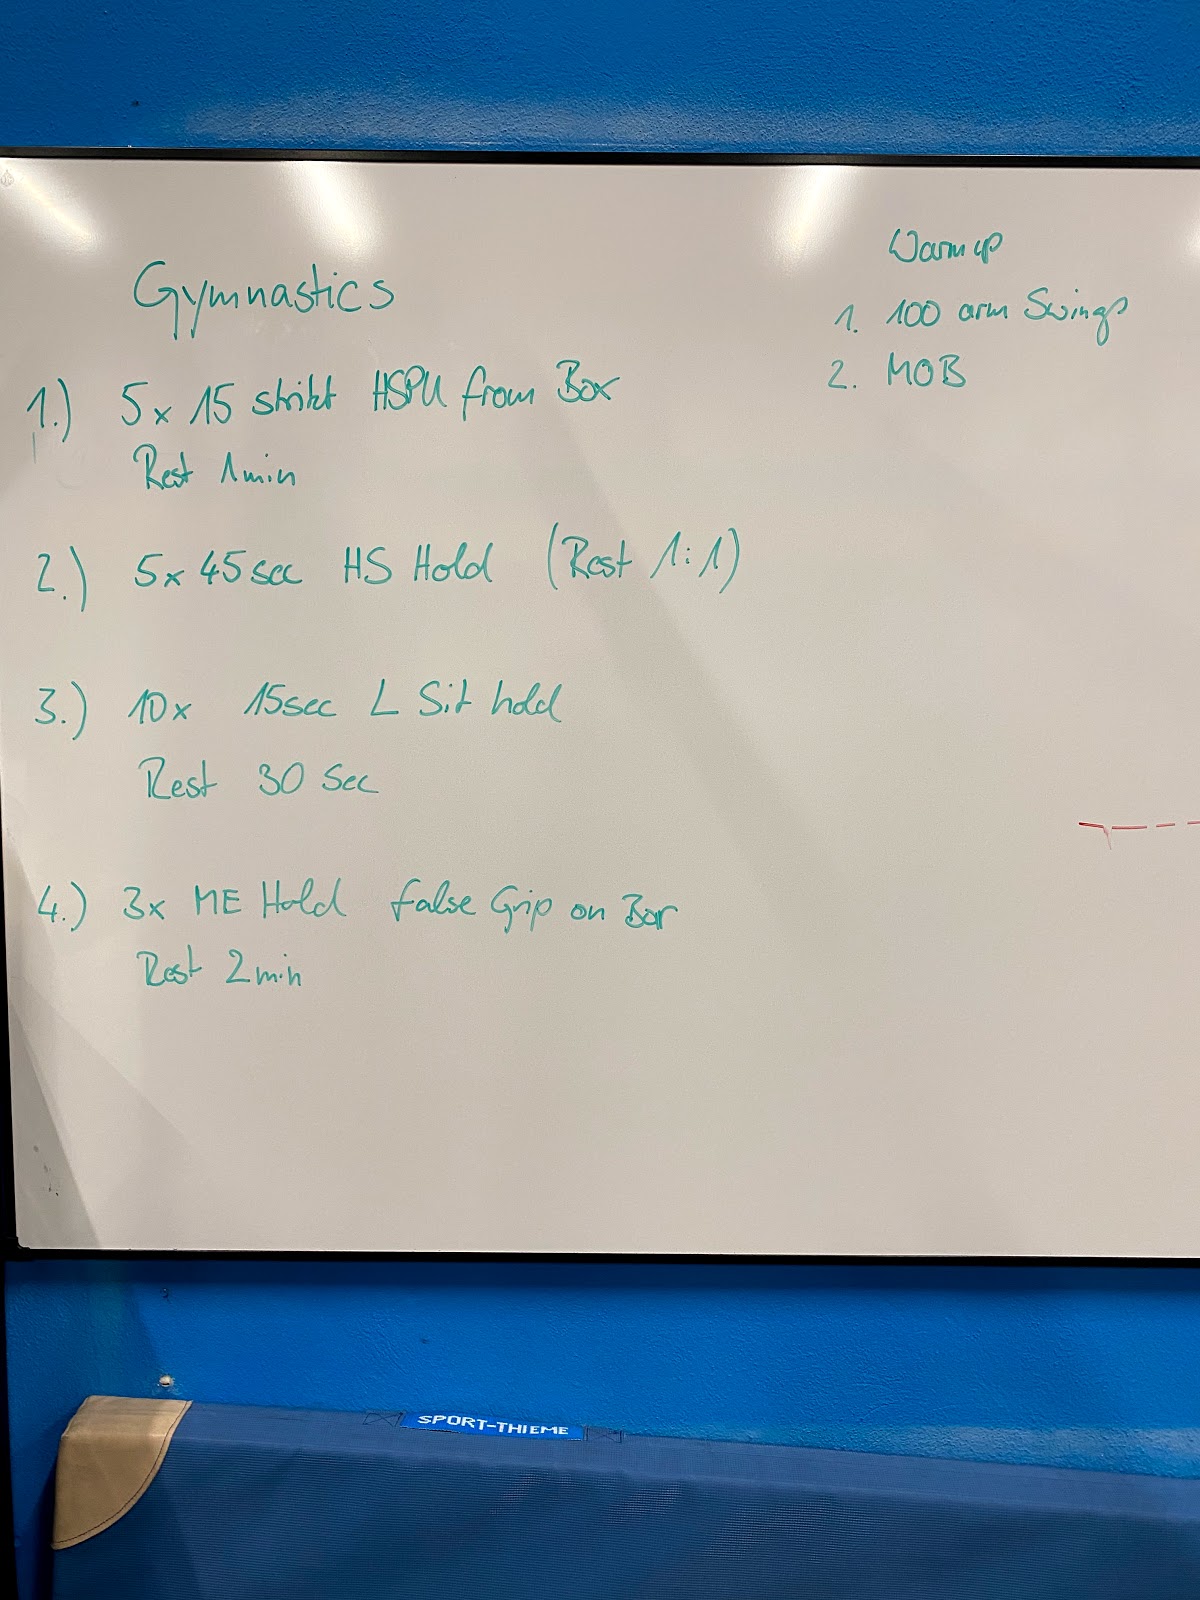 Gymnastics
1.) 5x 15 strikt HSPU from Box
Rest 1min
2.) 5x 45sec HS Hold (Rest 1:1)
3.) 10x 15sec L Sit hold
Rest 30 Sec
4.) 3x ME Hold false Grip on Bar
Rest 2min
Warmup
1. 100 arm Swings
2. MOB
SPORT-THIEME